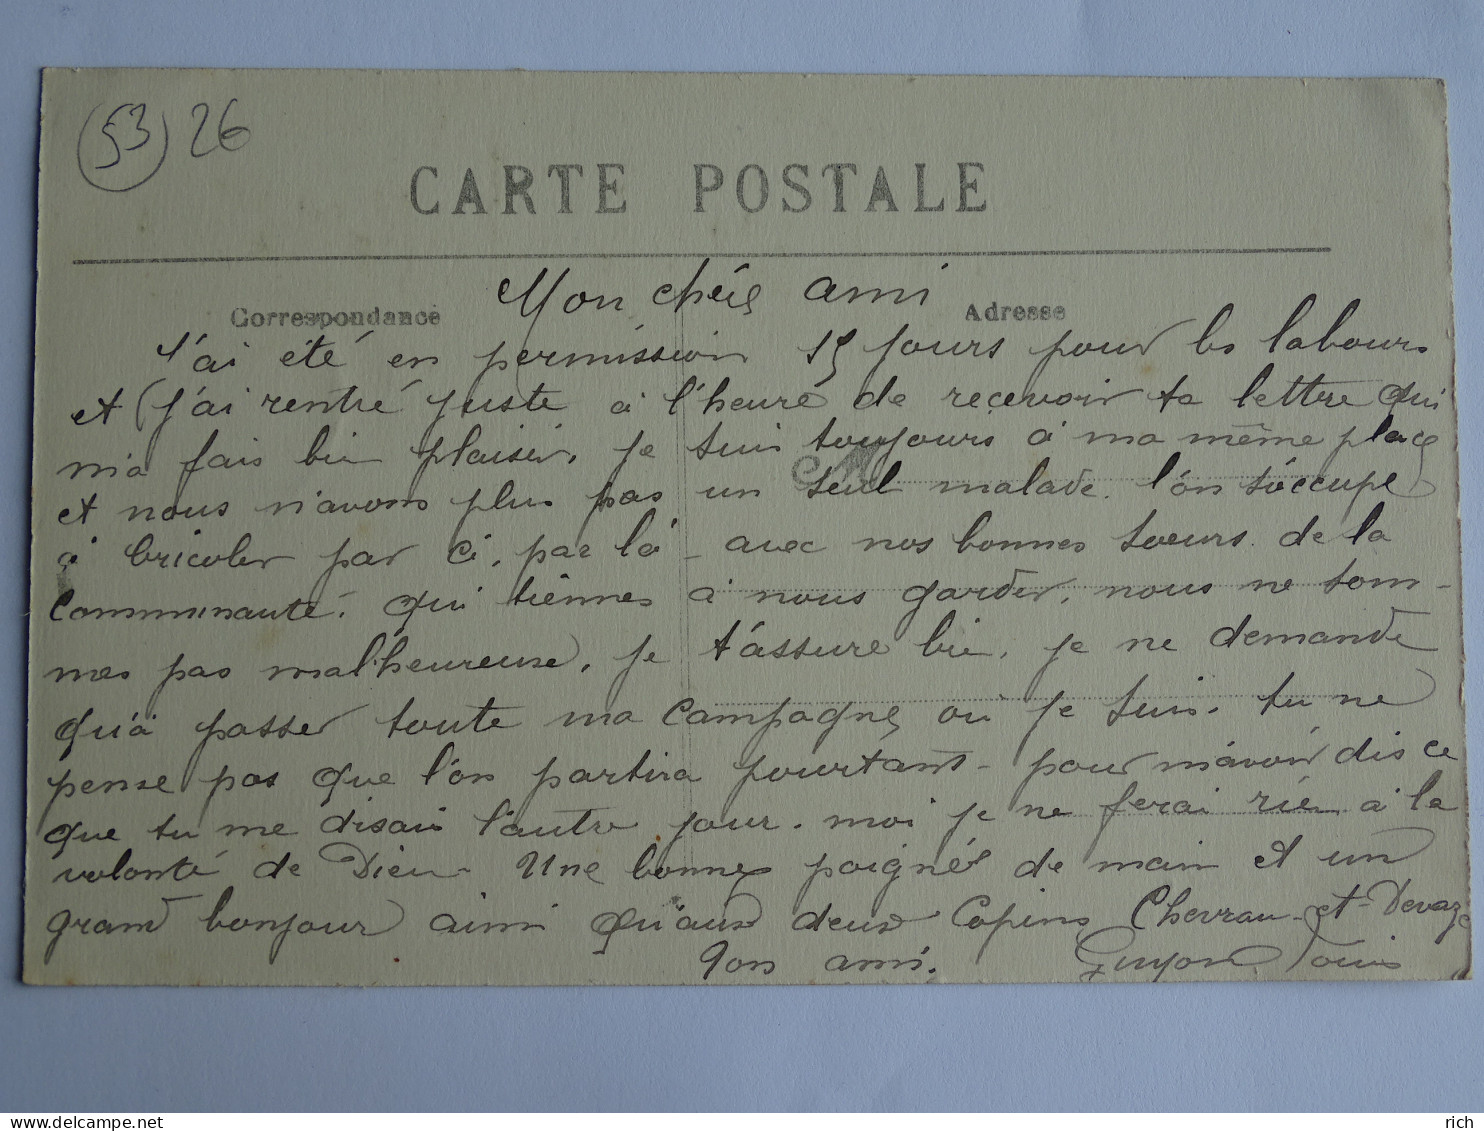 (53) 26
CARTE POSTALE
Mon chér ami
Correspondance
Adresse
J'ai été en permission 15 jours pour les labours
et j'ai rentré juste à l'heure de recevoir ta lettre qui
m'a fais bien plaisir, je suis toujours à ma même place
et nous n'avons plus pas un seul malade. l'on s'occupe
à bricoler par ci, par là - avec nos bonnes soeurs de la
communauté. qui tiennes à nous garder, nous ne som-
mes pas malheureuse, je t'assure bien, je ne demande
qu'à passer toute ma campagne ou je suis. tu ne
pense pas que l'on partira pourtant - pour m'avoir dis ce
que tu me disais l'autre jour. moi je ne ferai rien à la
volonté de Dieu. Une bonne poignés de main et un
grand bonjour ainsi qu'aux deux copins Chevrau et Devaze
Ton ami. Guyon Louis
rich